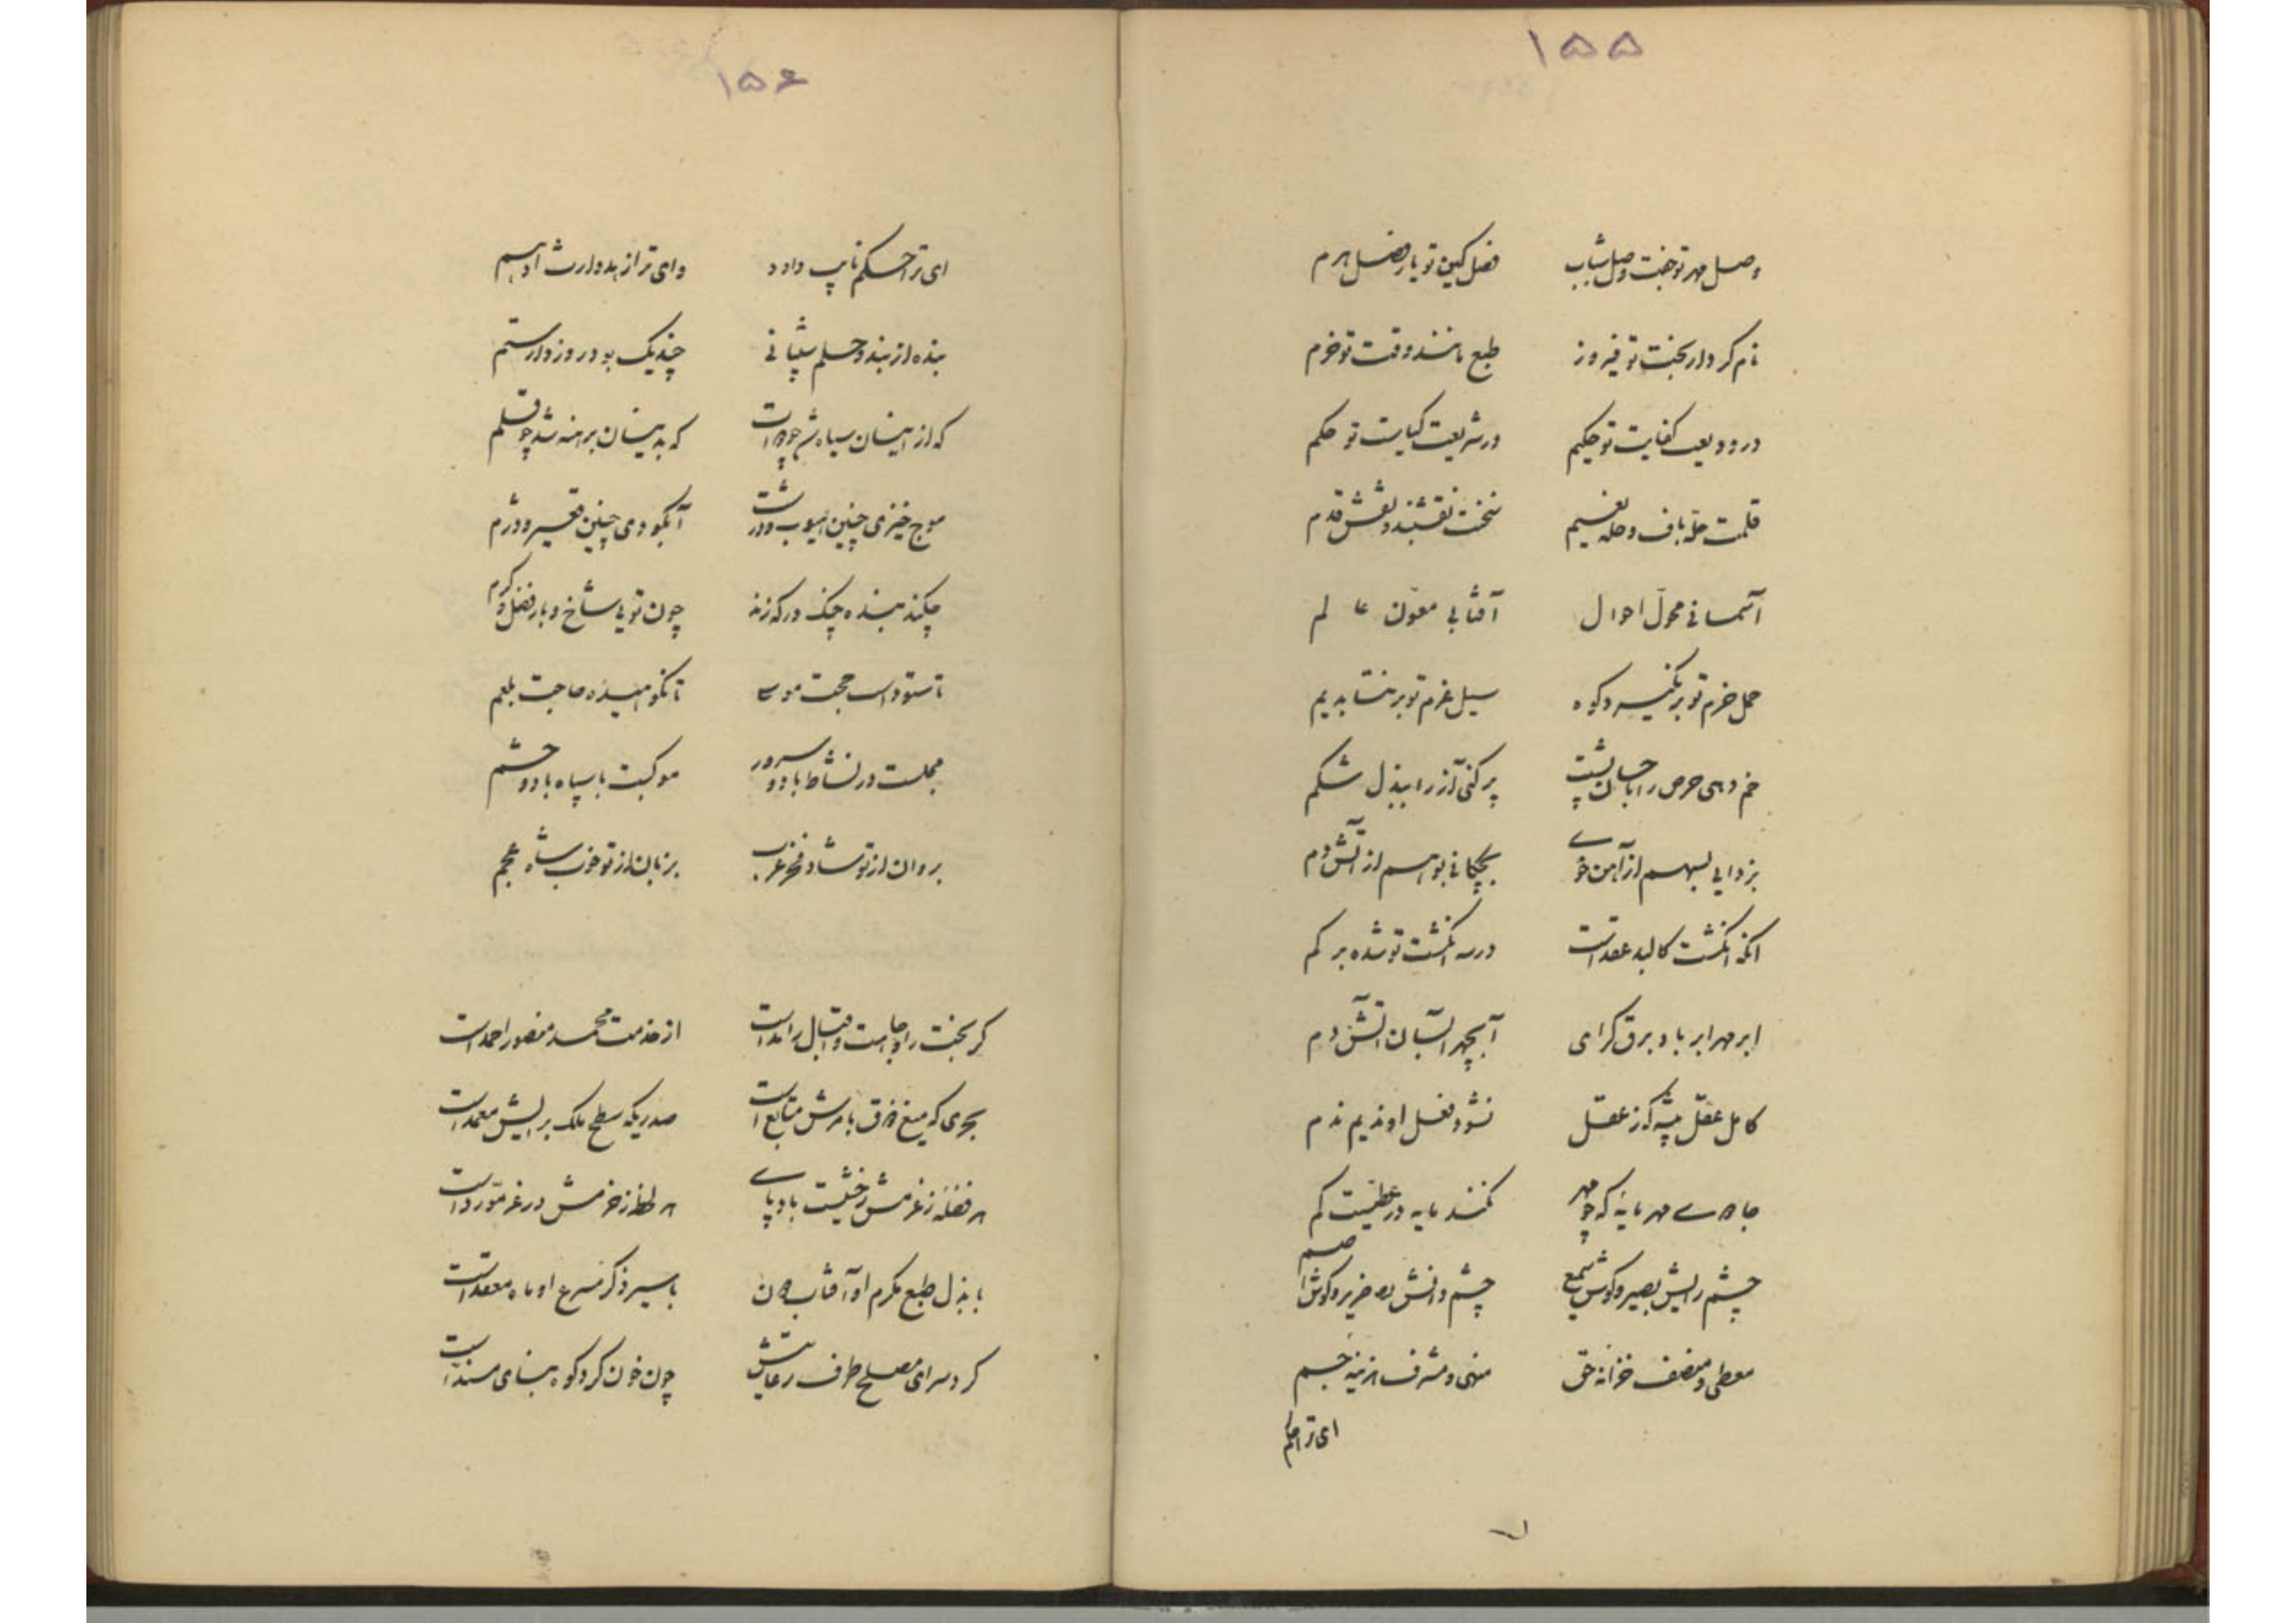 ۱۵۵
وصل مهر تو جفت وصل شباب فصل کین تو یار فصل هرم
نام کردار بخت تو فیروز طبع مانند وقت تو خرم
در ودیعت کفایت تو حکیم در شریعت کیاست تو حکم
قلمت حله باف و حله نفیسم سخنت نقشبند و نقش قدم
آسمانی محول احوال آفتابی معون عالم
حمل حزم تو بر نگیرد کوه سیل عزم تو بر نتابد یم
خم دهی حرص را باحسان پشت پر کنی آز را ببذل شکم
بزدایی بسهم از آهن خوی بچکانی بوهم از آتش دم
آنکه انگشت کالبد عقد است در سه انگشت تو شده بر کم
ابر مهر ابر باد برق گرای آبچهر آسمان آتش دم
کامل عقل پیشه کز عقل نشود فعل او ندیم ندم
جاهی مهر مایه که چو مهر نکند مایه در عطیت کم
چشم رایش بصیر و گوش سمیع چشم دانش ضریر و گوش اصم
معطی و منصف خزانه حق منهی و مشرف هزینه جم
ای ترا حکم
۱۵۶
ای ترا حکم نایب داود وای ترا زهد وارث ادهم
بنده از بند و حلم سلیمانی چند یک بود روز دار ستم
که از اینسان سیاه شد چو دوات که بدینسان برهنه شد چو قلم
موج خیزی چنین مهیب و درشت آبگو دمی چنین قعیر و دژم
چکند بنده چنگ در که زند چون تویی شاخ و بار فضل و کرم
تا ستوده است حجت موسی تا نکوهیده حاجت بلعم
مجلست در نشاط باد و سرور موکبت با سپاه باد و حشم
بروان از تو شاد فخر عرب بزبان از تو خوب شاه عجم
گر بخت را وجاهت و اقبال را ید است از خدمت محمد منصور احمد است
بحری که میغ فرق بامرش متابع است صدریکه سطح ملک برایش ممهد است
هر فضله ز عزمش رخشیست بادپای هر لحظه ز حزمش درعی مزرد است
با بذل طبع مکرم او آفتاب دون با سیر ذکر مسرع او ماه مقعد است
کرد سرای مصلح طرف رعایتش چون خون کرد کوه بنای مسند است